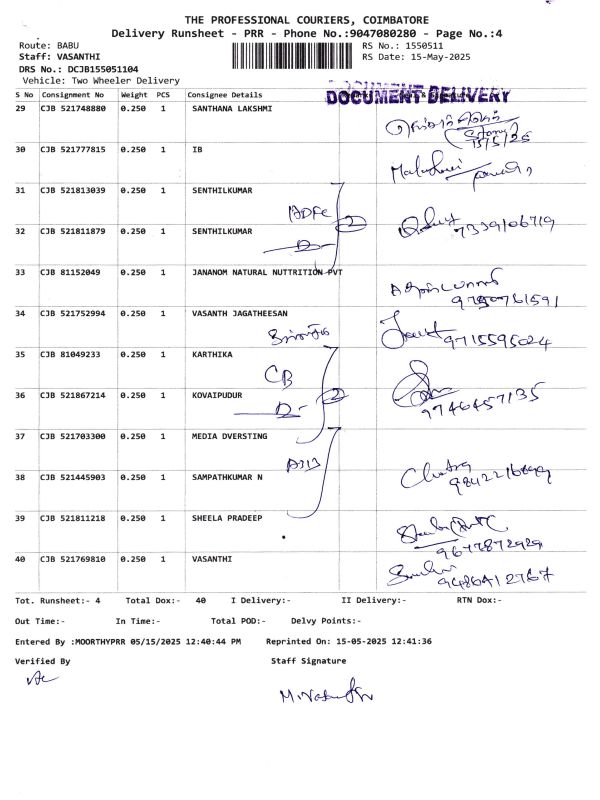 THE PROFESSIONAL COURIERS, COIMBATORE
Delivery Runsheet - PRR - Phone No.:9047080280 - Page No.:4
Route: BABU RS No.: 1550511
Staff: VASANTHI RS Date: 15-May-2025
DRS No.: DCJB155051104
Vehicle: Two Wheeler Delivery
DOCUMENT DELIVERY
S No Consignment No Weight PCS Consignee Details
29 CJB 521748880 0.250 1 SANTHANA LAKSHMI
15/5/25
30 CJB 521777815 0.250 1 IB
31 CJB 521813039 0.250 1 SENTHILKUMAR
32 CJB 521811879 0.250 1 SENTHILKUMAR
7339106719
33 CJB 81152049 0.250 1 JANANOM NATURAL NUTTRITION PVT
34 CJB 521752994 0.250 1 VASANTH JAGATHEESAN
9715595024
35 CJB 81049233 0.250 1 KARTHIKA
CB
36 CJB 521867214 0.250 1 KOVAIPUDUR
9746457135
37 CJB 521703300 0.250 1 MEDIA DVERSTING
38 CJB 521445903 0.250 1 SAMPATHKUMAR N
39 CJB 521811218 0.250 1 SHEELA PRADEEP
9677872929
40 CJB 521769810 0.250 1 VASANTHI
9486412767
Tot. Runsheet:- 4 Total Dox:- 40 I Delivery:- II Delivery:- RTN Dox:-
Out Time:- In Time:- Total POD:- Delvy Points:-
Entered By :MOORTHYPRR 05/15/2025 12:40:44 PM Reprinted On: 15-05-2025 12:41:36
Verified By Staff Signature